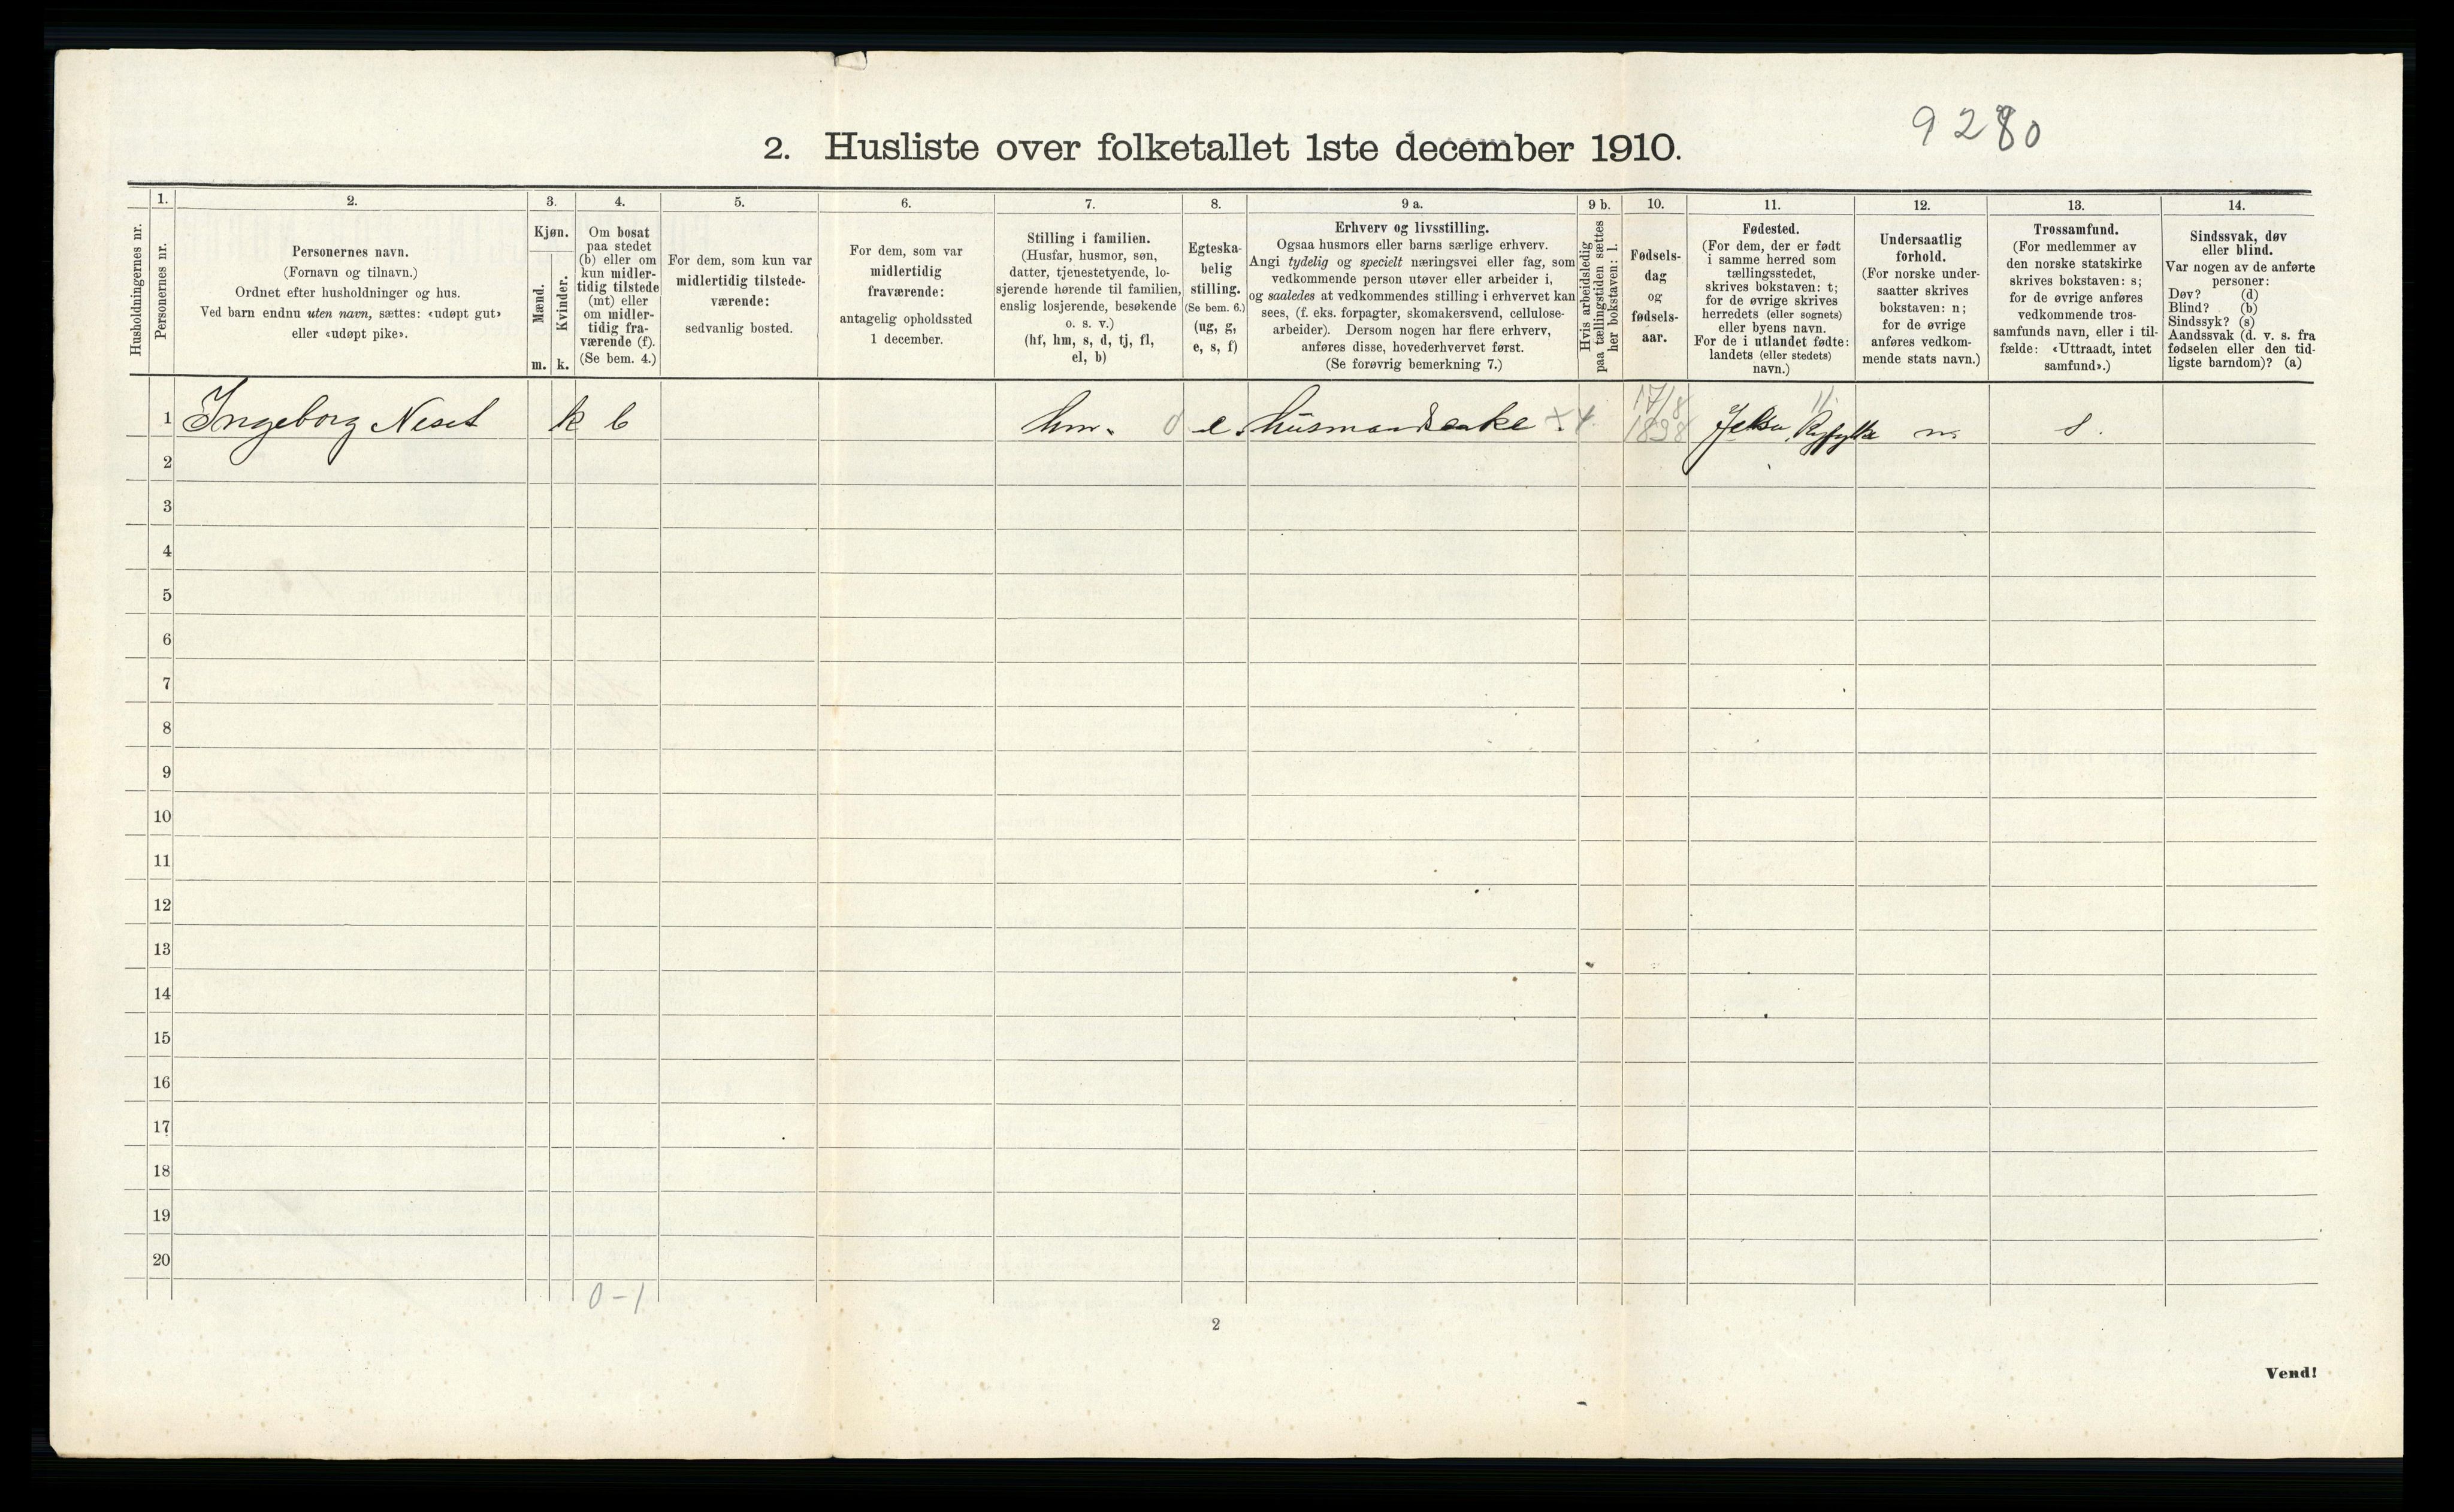 9280
2. Husliste over folketallet 1ste december 1910.
Husholdningernes nr.
1.
Personernes nr.
2.
Personernes navn.
(Fornavn og tilnavn.)
Ordnet efter husholdninger og hus.
Ved barn endnu uten navn, sættes: «udøpt gut»
eller «udøpt pike».
3.
Kjøn.
Mænd.
Kvinder.
m. k.
4.
Om bosat
paa stedet
(b) eller om
kun midler-
tidig tilstede
(mt) eller
om midler-
tidig fra-
værende (f).
(Se bem. 4.)
5.
For dem, som kun var
midlertidig tilstede-
værende:
sedvanlig bosted.
6.
For dem, som var
midlertidig
fraværende:
antagelig opholdssted
1 december.
7.
Stilling i familien.
(Husfar, husmor, søn,
datter, tjenestetyende, lo-
sjerende hørende til familien,
enslig losjerende, besøkende
o. s. v.)
(hf, hm, s, d, tj, fl,
el, b)
8.
Egteska-
belig
stilling.
(Se bem. 6.)
(ug, g,
e, s, f)
9 a.
Erhverv og livsstilling.
Ogsaa husmors eller barns særlige erhverv.
Angi tydelig og specielt næringsvei eller fag, som
vedkommende person utøver eller arbeider i,
og saaledes at vedkommendes stilling i erhvervet kan
sees, (f. eks. forpagter, skomakersvend, cellulose-
arbeider). Dersom nogen har flere erhverv,
anføres disse, hovederhvervet først.
(Se forøvrig bemerkning 7.)
9 b.
Hvis arbeidsledig
paa tællingstiden sættes
her bokstaven: l.
10.
Fødsels-
dag
og
fødsels-
aar.
11.
Fødested.
(For dem, der er født
i samme herred som
tællingsstedet,
skrives bokstaven: t;
for de øvrige skrives
herredets (eller sognets)
eller byens navn.
For de i utlandet fødte:
landets (eller stedets)
navn.)
12.
Undersaatlig
forhold.
(For norske under-
saatter skrives
bokstaven: n;
for de øvrige
anføres vedkom-
mende stats navn.)
13.
Trossamfund.
(For medlemmer av
den norske statskirke
skrives bokstaven: s;
for de øvrige anføres
vedkommende tros-
samfunds navn, eller i til-
fælde: «Uttraadt, intet
samfund».)
14.
Sindssvak, døv
eller blind.
Var nogen av de anførte
personer:
Døv? (d)
Blind? (b)
Sindssyk? (s)
Aandssvak (d. v. s. fra
fødselen eller den tid-
ligste barndom)? (a)
1 Ingeborg Neset k b hm. 0 e. husmandsenke. 17/8 Jelsa, Ryfylke n. s.
2
3
4
5
6
7
8
9
10
11
12
13
14
15
16
17
18
19
20
0-1
2
Vend!